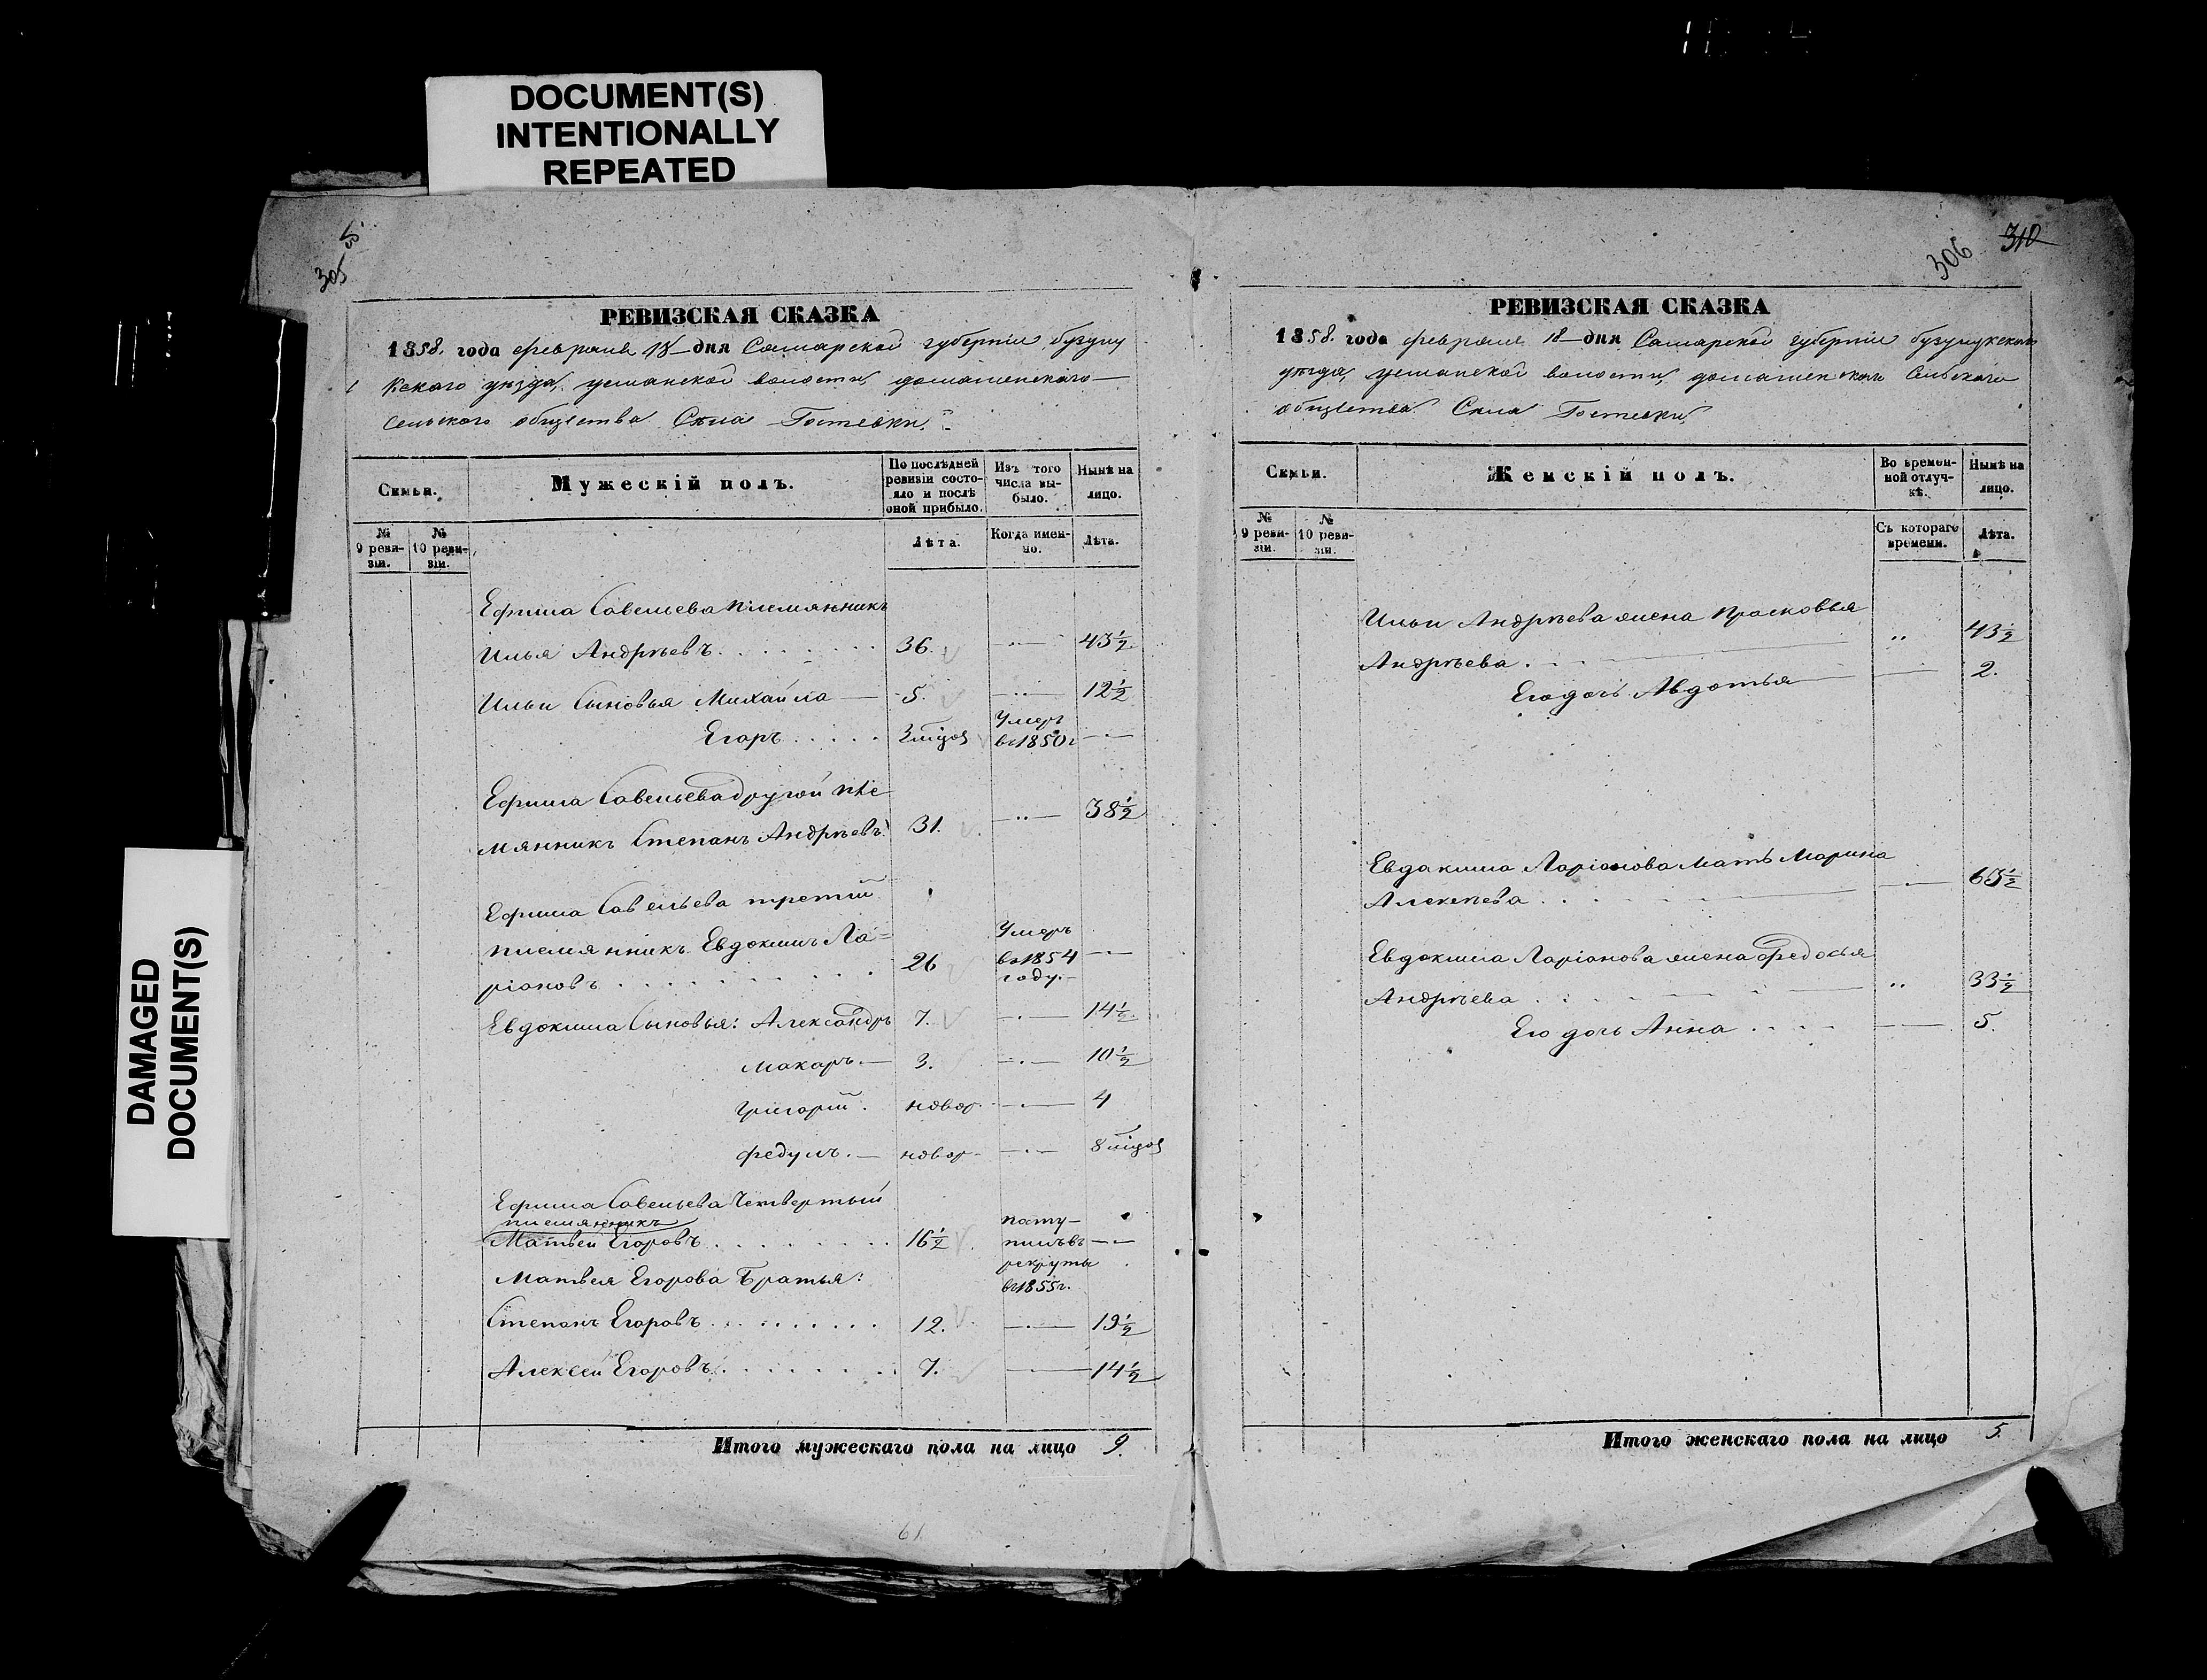 DOCUMENT(S)
INTENTIONALLY
REPEATED
DAMAGED
DOCUMENT(S)
305
РЕВИЗСКАЯ СКАЗКА
1858. года февраля 18 дня Самарской губернии бузулу
кскаго уезда, усманской волости, домашенскаго
сельского общества Села Гостевки.
Семьи.
Мужескій полъ.
По послѣдней ревизіи состояло и послѣ оной прибыло.
Изъ того числа выбыло.
Нынѣ на лицо.
№ 9 ревизіи.
№ 10 ревизіи.
Лѣта.
Когда именно.
Лѣта.
Ефима Савельева племянникъ
Илья Андрѣевъ. 36. 43½
Ильи Сыновья Михайла 5. 12½
Егоръ 3 мцов Умеръ въ 1850 г
Ефима Савельева другой пле
мянникъ Степанъ Андрѣевъ. 31. 38½
Ефима Савельева третій
племянникъ Евдокимъ Ла=
ріоновъ 26 Умеръ въ 1854 году.
Евдокима Сыновья: Александръ 7. 14½
Макаръ. 3. 10½
Григорій. новор. 4
Федулъ. новор. 8 мцов
Ефима Савельева Четвертый
племянникъ
Матвей Егоровъ 16½ посту-
пилъ въ
рекруты
въ 1855 г.
Матвея Егорова Братья:
Степанъ Егоровъ 12. 19½
Алексей Егоровъ 7. 14½
Итого мужескаго пола на лицо 9.
61
306 310
РЕВИЗСКАЯ СКАЗКА
1858. года февраля 18 дня Самарской губернии бузулукскаго
уезда, усманской волости, домашенскаго Сельскаго
общества Села Гостевки
Семьи.
Женскій полъ.
Во временной отлучкѣ.
Нынѣ на лицо.
№ 9 ревизіи.
№ 10 ревизіи.
Съ котораго времени.
Лѣта.
Ильи Андрѣева жена Прасковья
Андрѣева. 43½
Его дочь Авдотья 2.
Евдакима Ларіонова мать Марина
Алексѣева 63½
Евдокима Ларіонова жена Федосья
Андрѣева 33½
Его дочь Анна 5.
Итого женскаго пола на лицо 5.